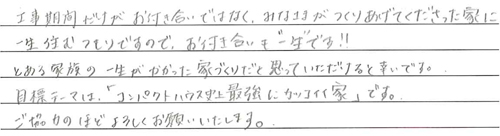 工事期間だけがお付き合いではなく、みなさまがつくりあげてくださった家に
一生住むつもりですので、お付き合いも"一生"です!!
とある家族の一生がかかった家づくりだと思っていただけると幸いです。
目標テーマは、「コンパクトハウス史上最強にカッコイイ家」です。
ご協力のほどよろしくお願いいたします。